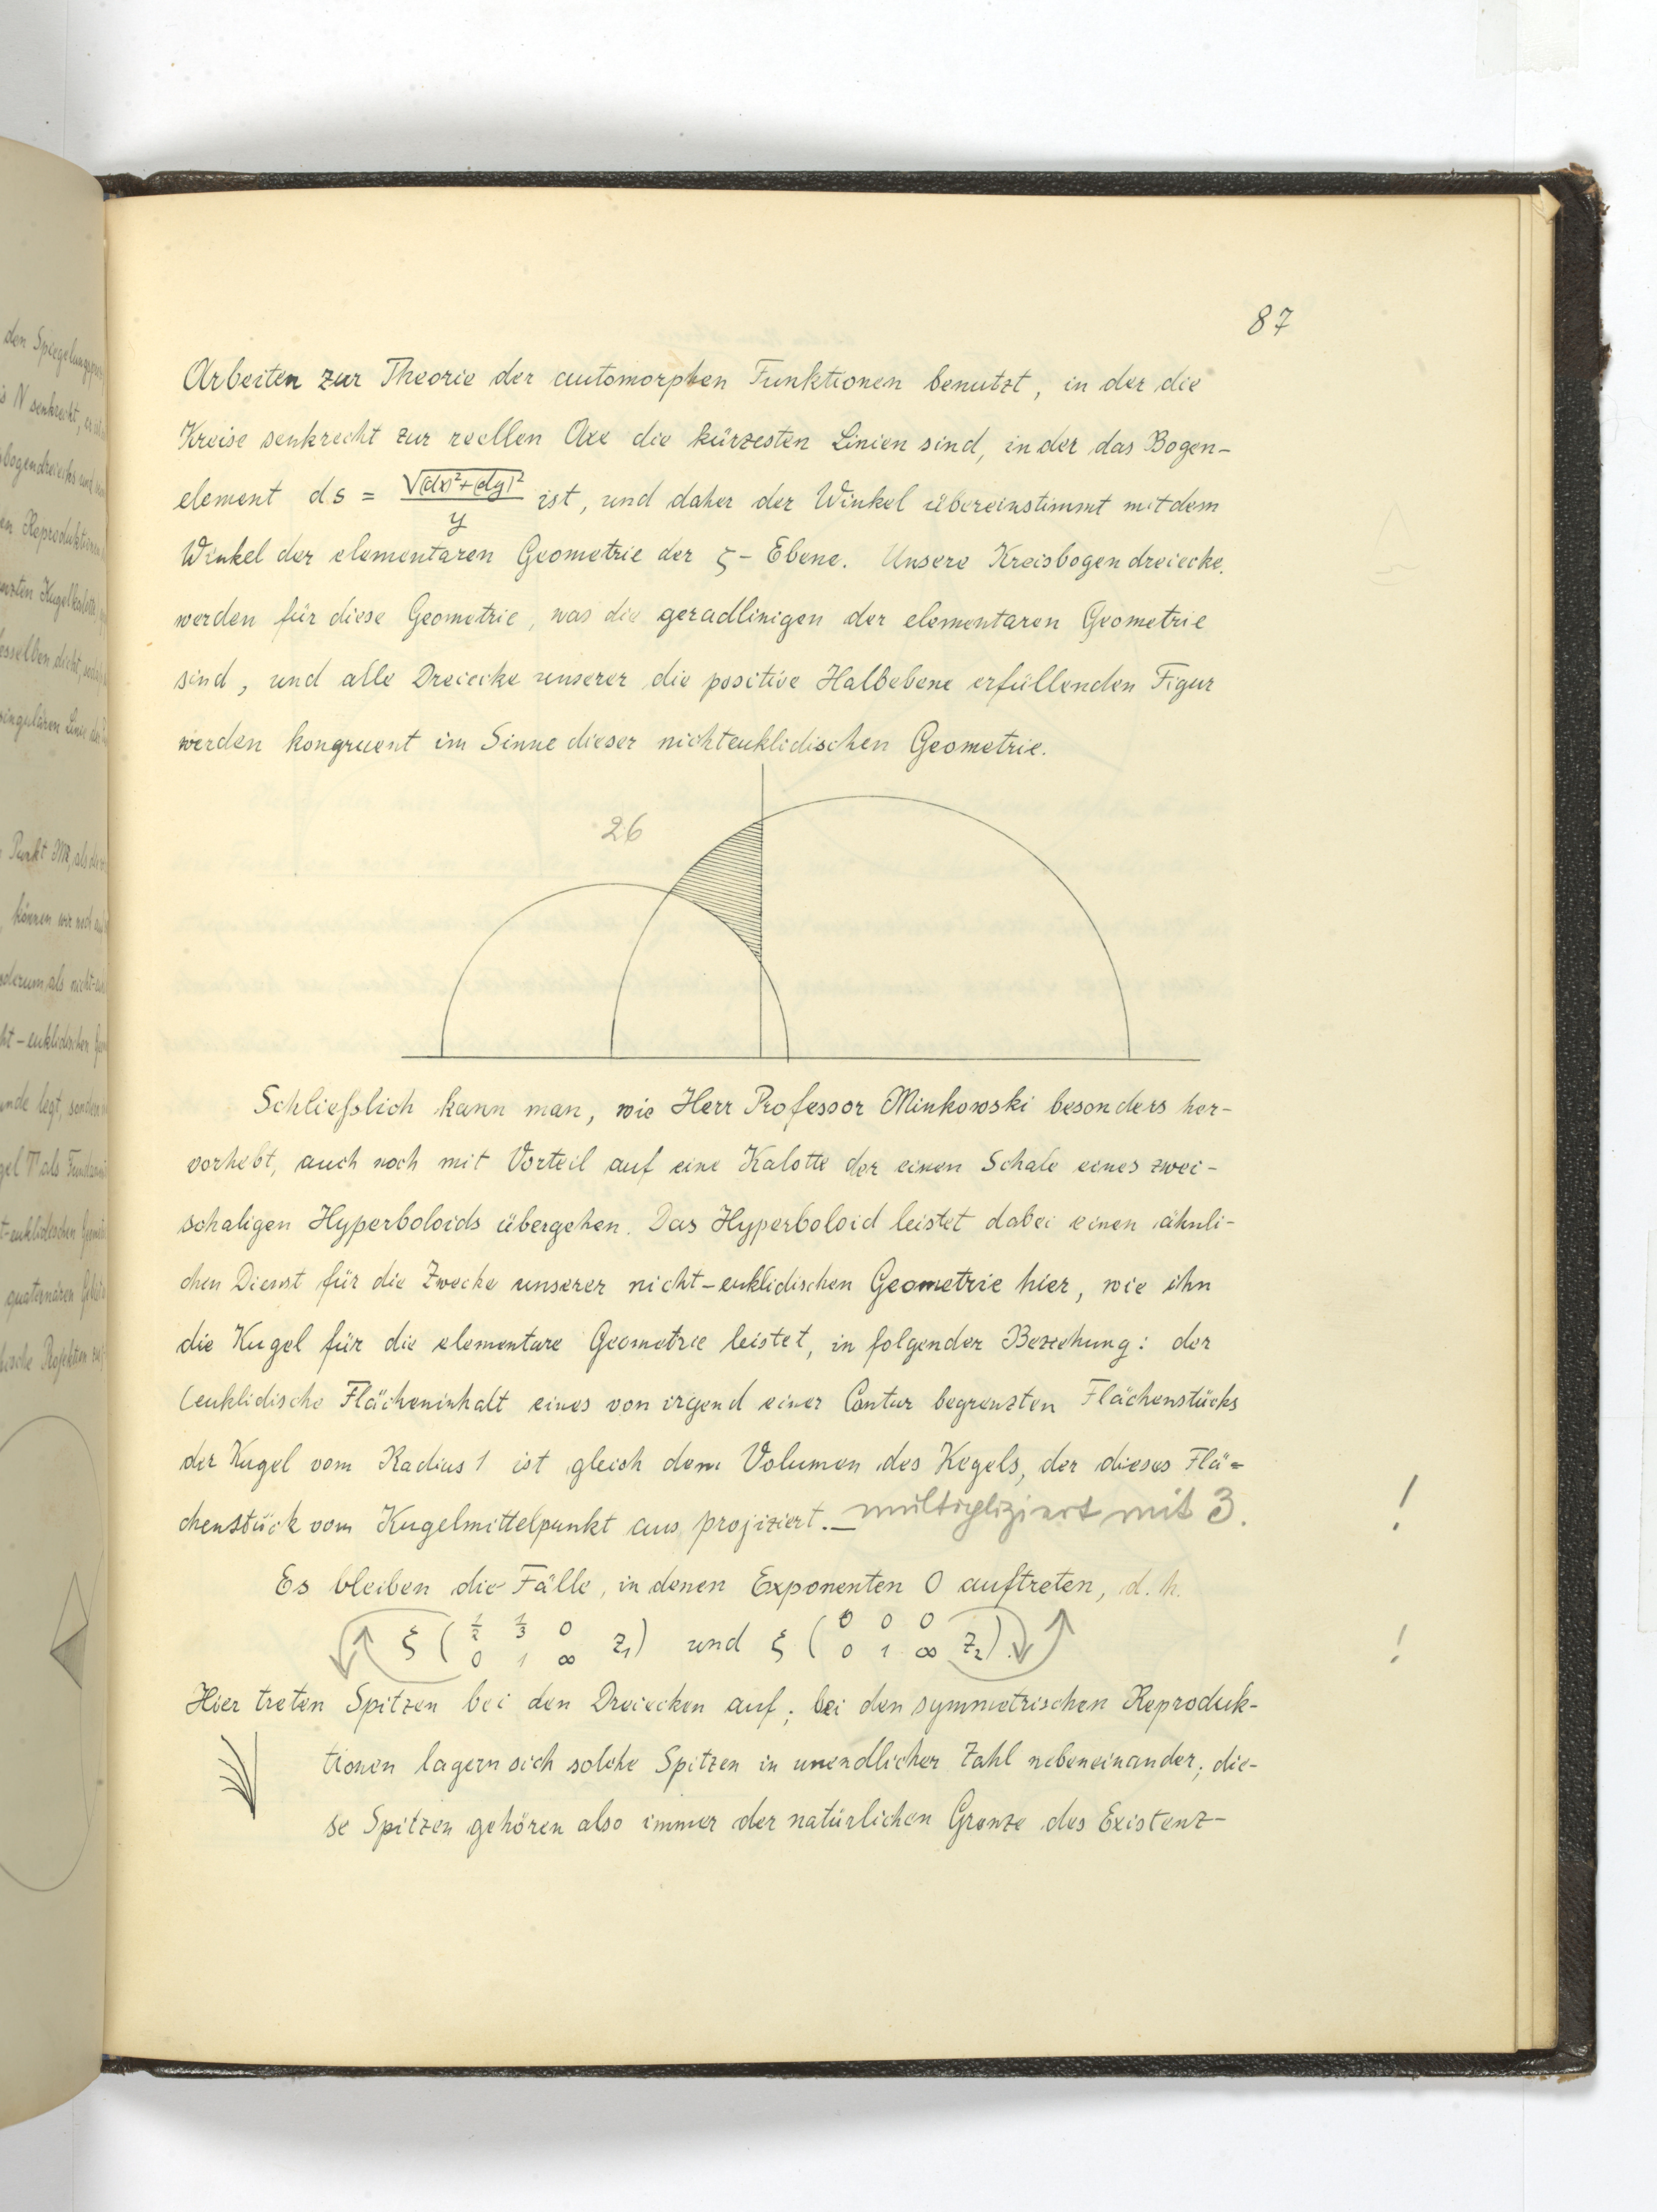 87
Arbeiten zur Theorie der automorphen Funktionen benutzt, in der die
Kreise senkrecht zur reellen Axe die kürzesten Linien sind, in der das Bogen-
element ds = √(dx)²+(dy)² / y ist, und daher der Winkel übereinstimmt mit dem
Winkel der elementaren Geometrie der ζ-Ebene. Unsere Kreisbogendreiecke
werden für diese Geometrie, was die geradlinigen der elementaren Geometrie
sind, und alle Dreiecke unserer die positive Halbebene erfüllenden Figur
werden kongruent im Sinne dieser nichteuklidischen Geometrie.
26
Schließlich kann man, wie Herr Professor Minkowski besonders her-
vorhebt, auch noch mit Vorteil auf eine Kalotte der einen Schale eines zwei-
schaligen Hyperboloids übergehen. Das Hyperboloid leistet dabei einen ähnli-
chen Dienst für die Zwecke unserer nicht-euklidischen Geometrie hier, wie ihn
die Kugel für die elementare Geometrie leistet, in folgender Beziehung: der
(euklidische Flächeninhalt eines von irgend einer Contur begrenzten Flächenstücks
der Kugel vom Radius 1 ist gleich dem Volumen des Kegels, der dieses Flä=
chenstück vom Kugelmittelpunkt aus projiziert. — multipliziert mit 3. !
Es bleiben die Fälle, in denen Exponenten 0 auftreten, d. h.
ξ ( 1/2 1/3 0 / 0 1 ∞ z₁) und ξ ( 0 0 0 / 0 1 ∞ z₂). !
Hier treten Spitzen bei den Dreiecken auf; bei den symmetrischen Reproduk-
tionen lagern sich solche Spitzen in unendlicher Zahl nebeneinander; die-
se Spitzen gehören also immer der natürlichen Grenze des Existenz-